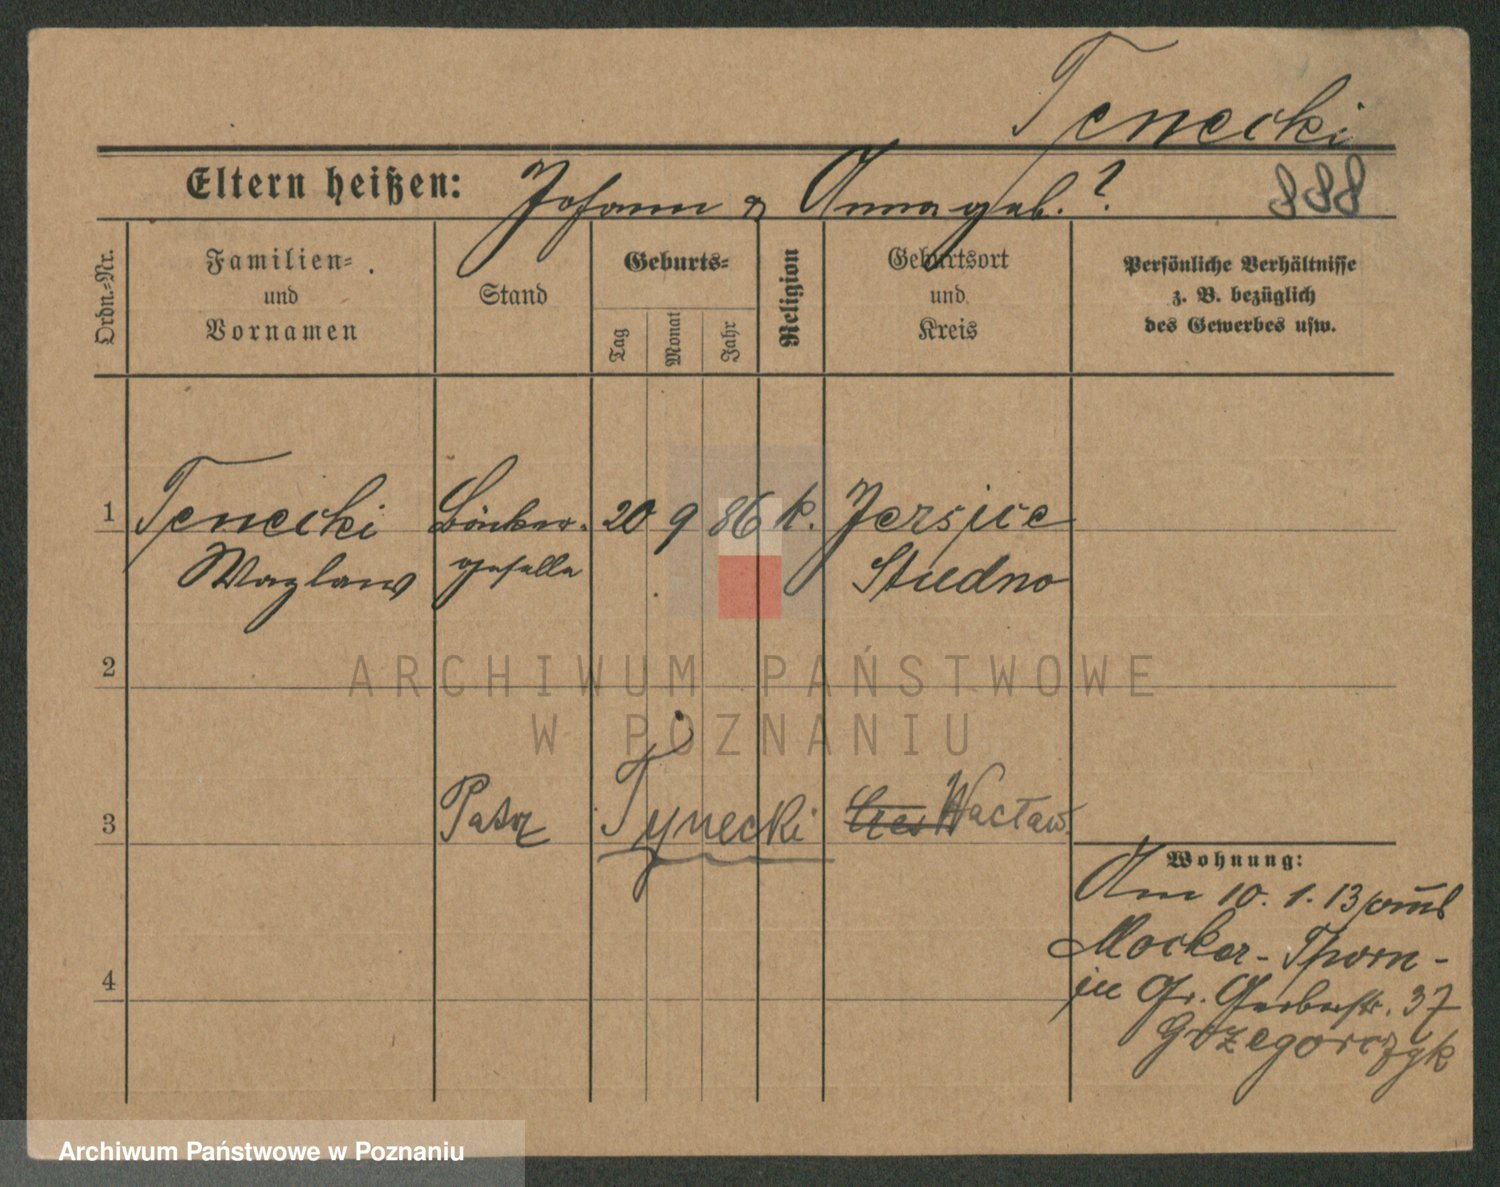 Tenecki
Eltern heißen: Johann & Anna geb. ?
888
Ordn.-Nr.
Familien-
und
Vornamen
Stand
Geburts-
Tag
Monat
Jahr
Religion
Geburtsort
und
Kreis
Persönliche Verhältnisse
z. B. bezüglich
des Gewerbes usw.
1 Tenecki Bäcker- 20 9 86 k. Jersice
Wazlaw geselle Studno
2
ARCHIWUM PAŃSTWOWE
W POZNANIU
3 Patrz Tynecki Wacław
Wohnung:
Am 10. 1. 13 von
Mocker - Thorn -
in Gr. Gerberstr. 37
4
Grzegorczyk
Archiwum Państwowe w Poznaniu